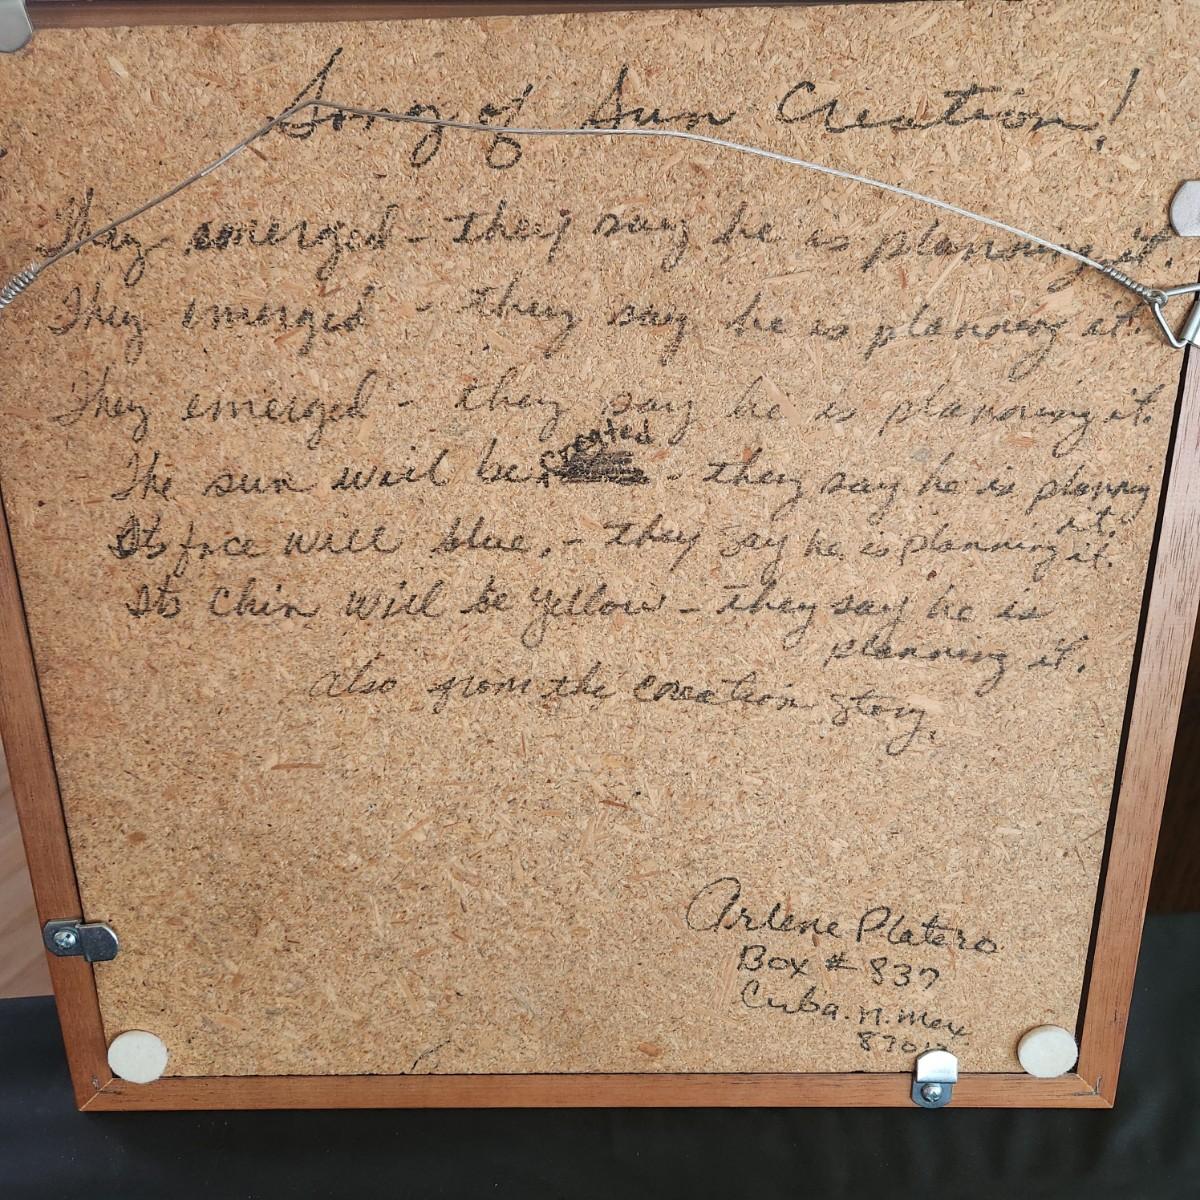 Song of Sun Creation!
They emerged - they say he is planning it.
They emerged - they say he is planning it.
They emerged - they say he is planning it.
The sun will be created - they say he is planning it.
Its face will blue, - they say he is planning it.
Its Chin will be yellow - they say he is
planning it.
also from the creation story.
Arlene Platero
Box # 837
Cuba. n. mex